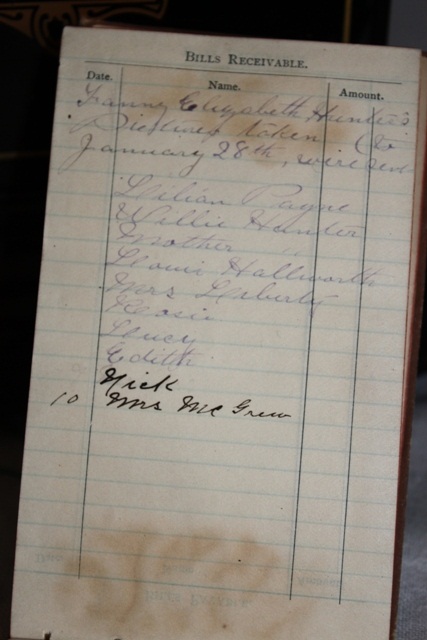 BILLS RECEIVABLE.
Date. Name. Amount.
Fanny Elizabeth Hunter's
Pictures taken
January 28th, were sent
Lilian Payne
Willie Hunter
Mother "
Louie Hallworth
Mrs Liberty
Rosie
Lucy
Edith
Nick
10 Mrs McGrew
BILLS PAYABLE.